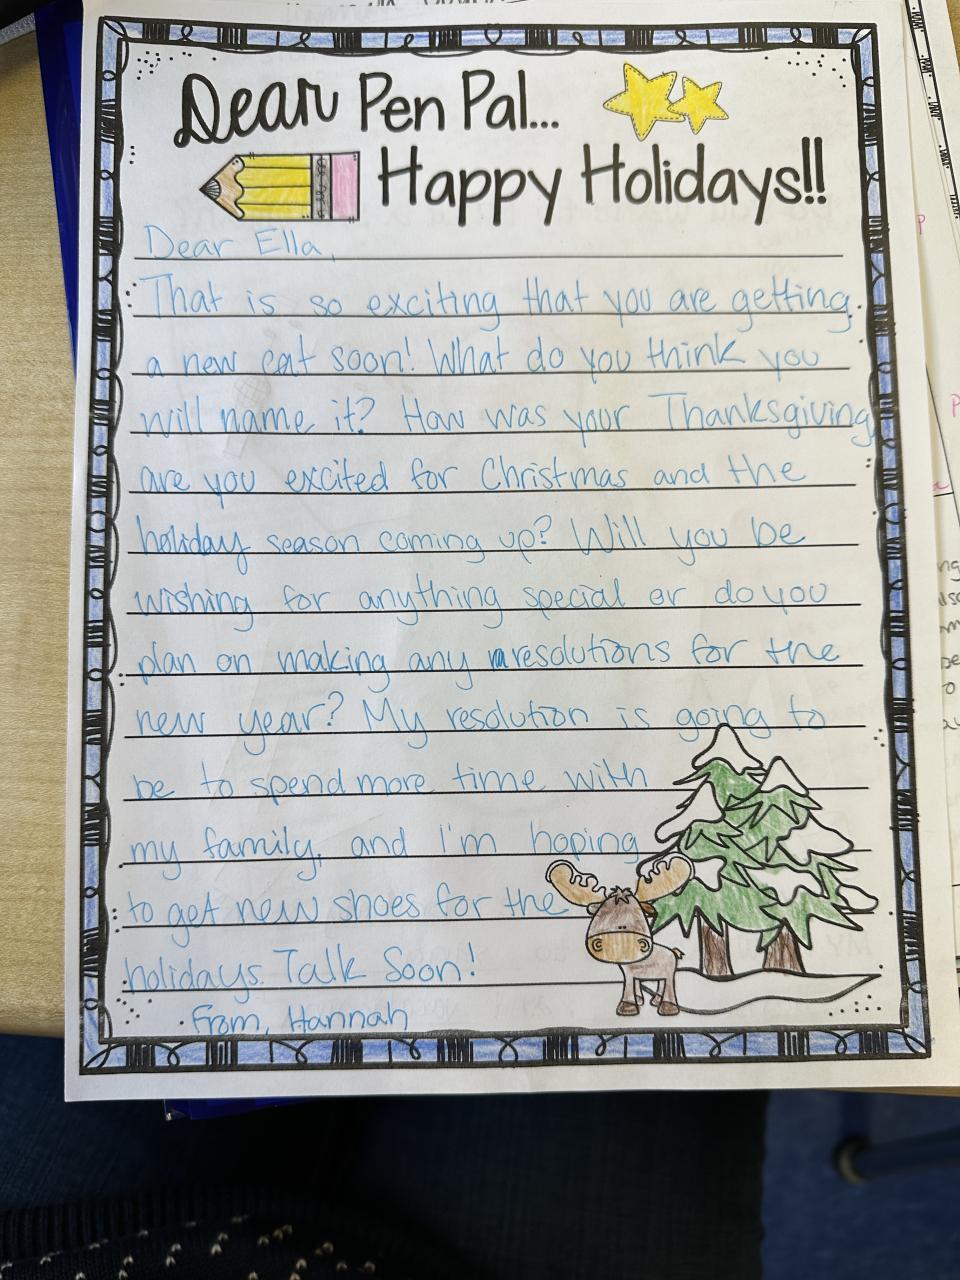 Dear Pen Pal...
Happy Holidays!!
Dear Ella,
That is so exciting that you are getting
a new cat soon! What do you think you
will name it? How was your Thanksgiving,
are you excited for Christmas and the
holiday season coming up? Will you be
wishing for anything special or do you
plan on making any resolutions for the
new year? My resolution is going to
be to spend more time with
my family, and I'm hoping
to get new shoes for the
holidays. Talk Soon!
From, Hannah